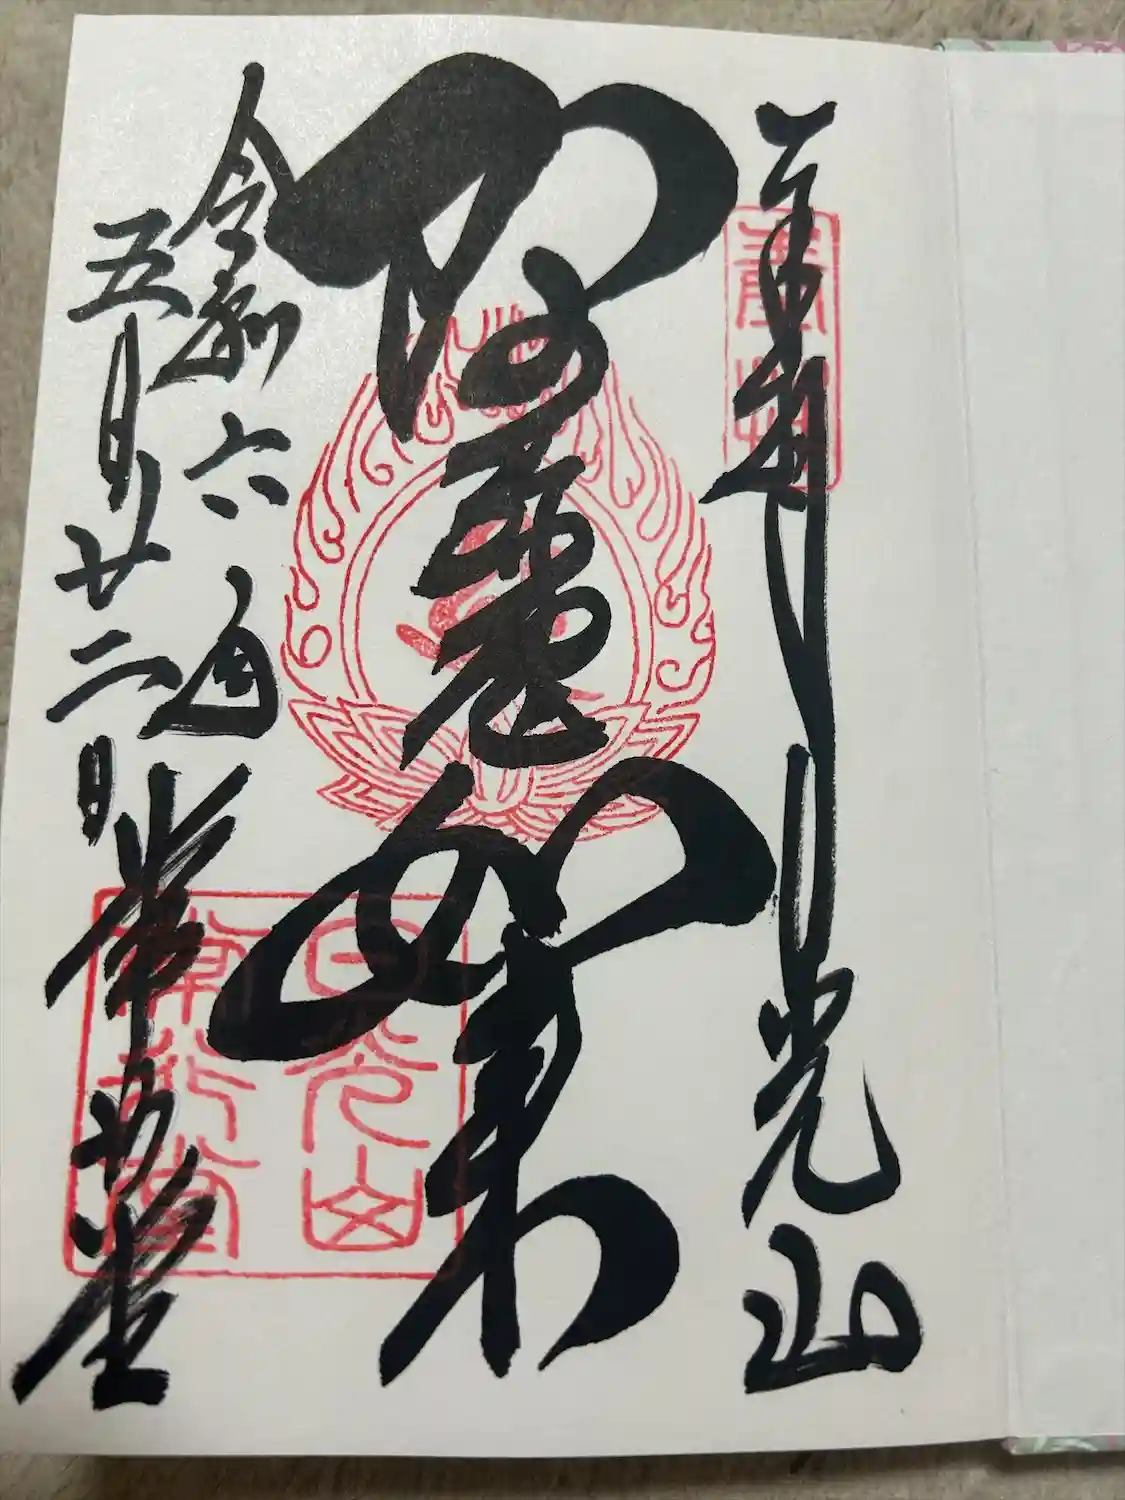 奉拝 日光山
阿 如来
令和六 常行堂
五月廿二日
日光山
常行堂